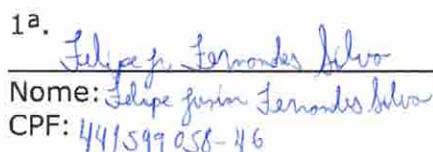 1ª.
Felipe Jr Fernandes Silva
Nome: Felipe Junior Fernandes Silva
CPF: 441599058-46